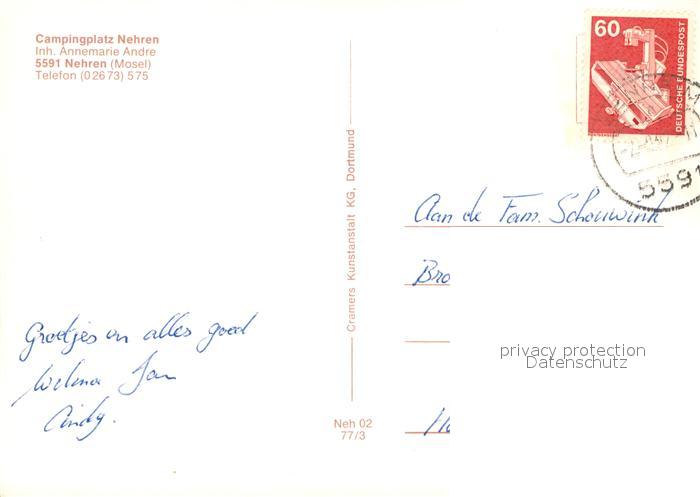 Campingplatz Nehren
Inh. Annemarie Andre
5591 Nehren (Mosel)
Telefon (02673) 575
60
DEUTSCHE BUNDESPOST
5591
Cramers Kunstanstalt KG, Dortmund
Aan de Fam. Schouwink
Bro
privacy protection
Datenschutz
Groetjes en alles goed
Wilma Jan
Cindy.
Neh 02
77/3